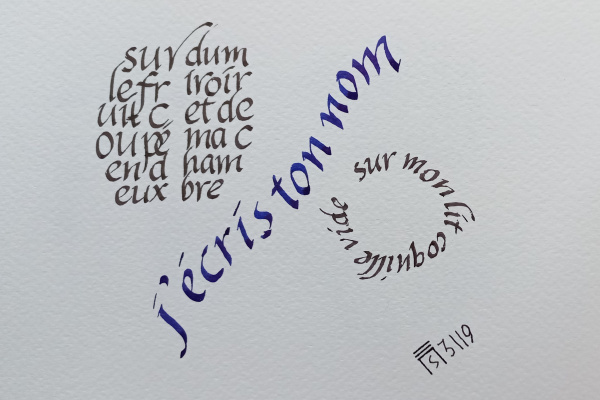 sur
lefr
uit c
oupé
en d
eux
dum
iroir
et de
ma c
ham
bre
sur mon lit coquille vide
j'écris ton nom